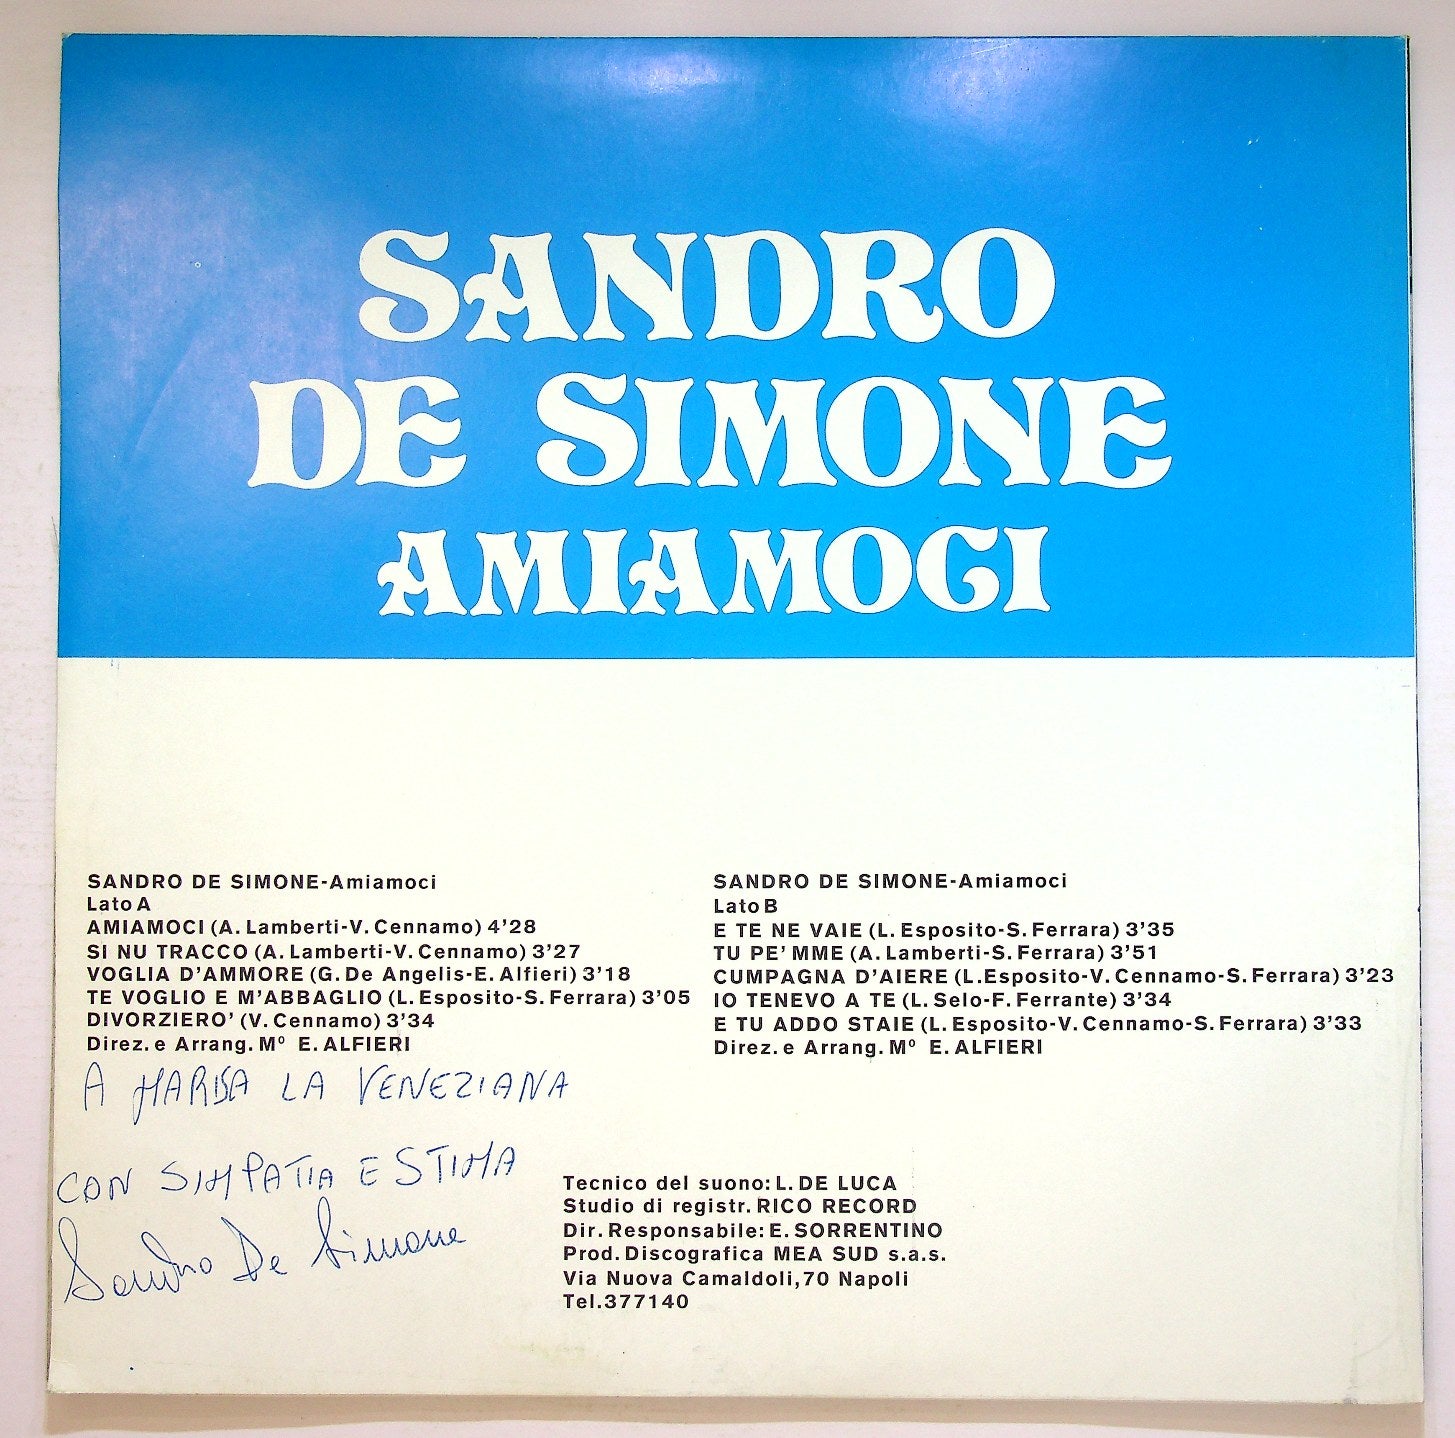 SANDRO
DE SIMONE
AMIAMOCI
SANDRO DE SIMONE-Amiamoci
Lato A
AMIAMOCI (A. Lamberti-V. Cennamo) 4'28
SI NU TRACCO (A. Lamberti-V. Cennamo) 3'27
VOGLIA D'AMMORE (G. De Angelis-E. Alfieri) 3'18
TE VOGLIO E M'ABBAGLIO (L. Esposito-S. Ferrara) 3'05
DIVORZIERO' (V. Cennamo) 3'34
Direz. e Arrang. Mº E. ALFIERI
SANDRO DE SIMONE-Amiamoci
Lato B
E TE NE VAIE (L. Esposito-S. Ferrara) 3'35
TU PE' MME (A. Lamberti-S. Ferrara) 3'51
CUMPAGNA D'AIERE (L. Esposito-V. Cennamo-S. Ferrara) 3'23
IO TENEVO A TE (L. Selo-F. Ferrante) 3'34
E TU ADDO STAIE (L. Esposito-V. Cennamo-S. Ferrara) 3'33
Direz. e Arrang. Mº E. ALFIERI
A MARISA LA VENEZIANA
CON SIMPATIA E STIMA
Sandro De Simone
Tecnico del suono: L. DE LUCA
Studio di registr. RICO RECORD
Dir. Responsabile: E. SORRENTINO
Prod. Discografica MEA SUD s.a.s.
Via Nuova Camaldoli,70 Napoli
Tel.377140